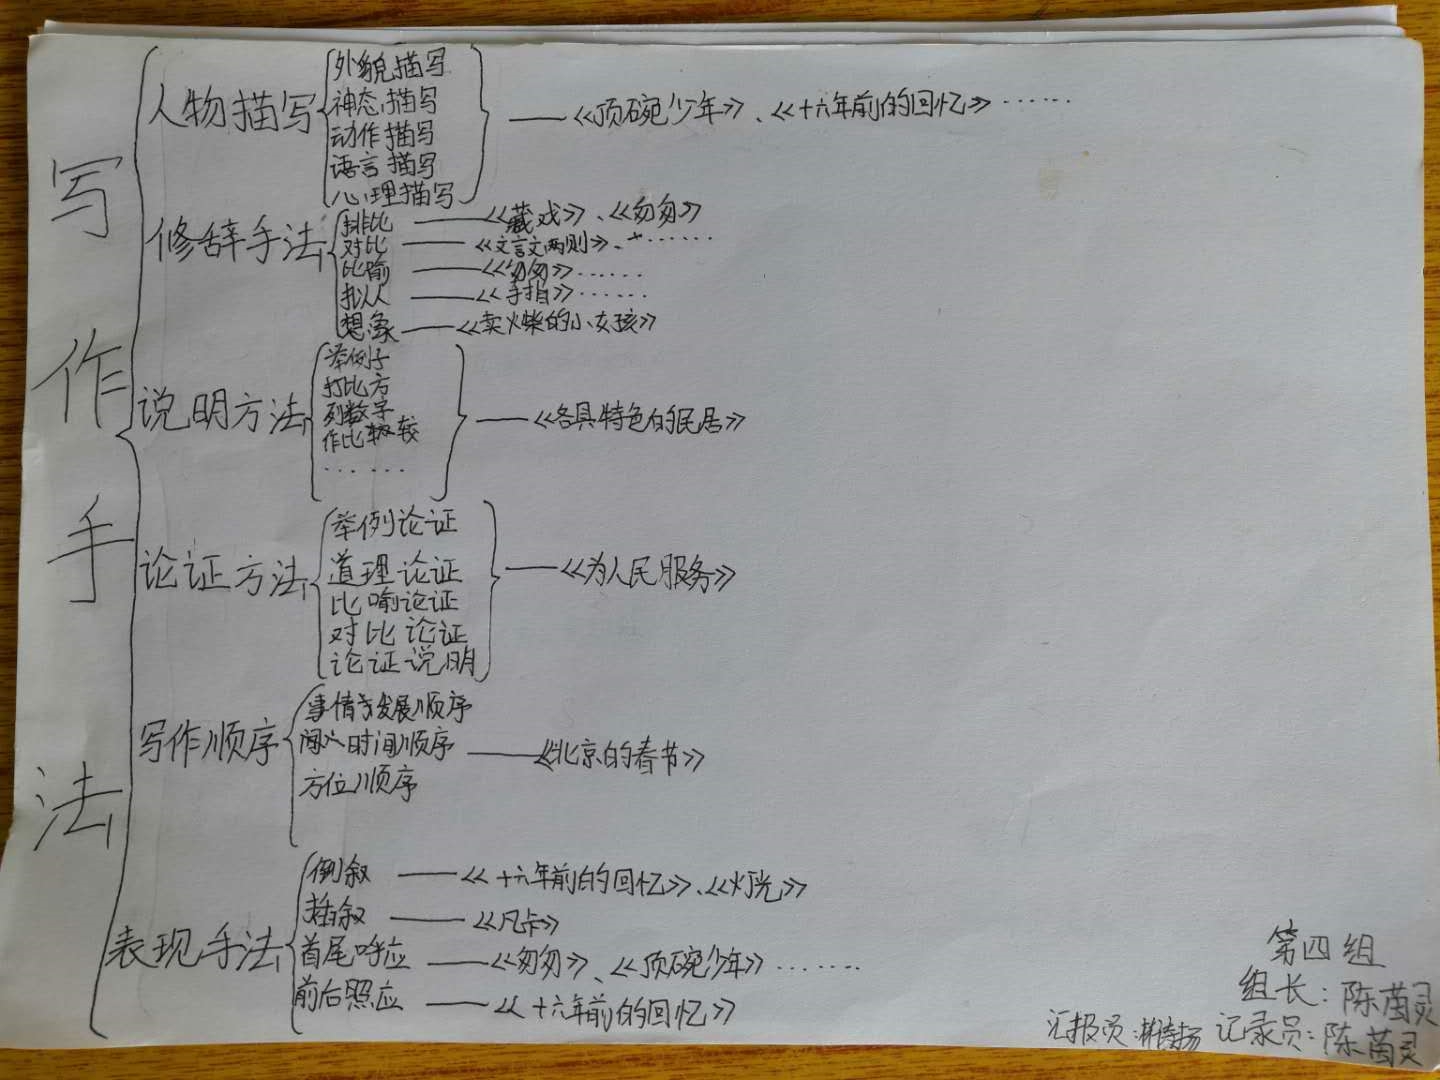 写作手法
人物描写
外貌描写
神态描写
动作描写
语言描写
心理描写
——《顶碗少年》、《十六年前的回忆》……
修辞手法
排比——《藏戏》、《匆匆》
对比——《文言文两则》、……
比喻——《匆匆》……
拟人——《手指》……
想象——《卖火柴的小女孩》
说明方法
举例子
打比方
列数字
作比较
……
——《各具特色的民居》
论证方法
举例论证
道理论证
比喻论证
对比论证
论证说明
——《为人民服务》
写作顺序
事情发展顺序
时间顺序——《北京的春节》
方位顺序
表现手法
倒叙——《十六年前的回忆》、《灯光》
插叙——《凡卡》
首尾呼应——《匆匆》、《顶碗少年》……
前后照应——《十六年前的回忆》
第四组
组长：陈茵灵
汇报员： 记录员：陈茵灵